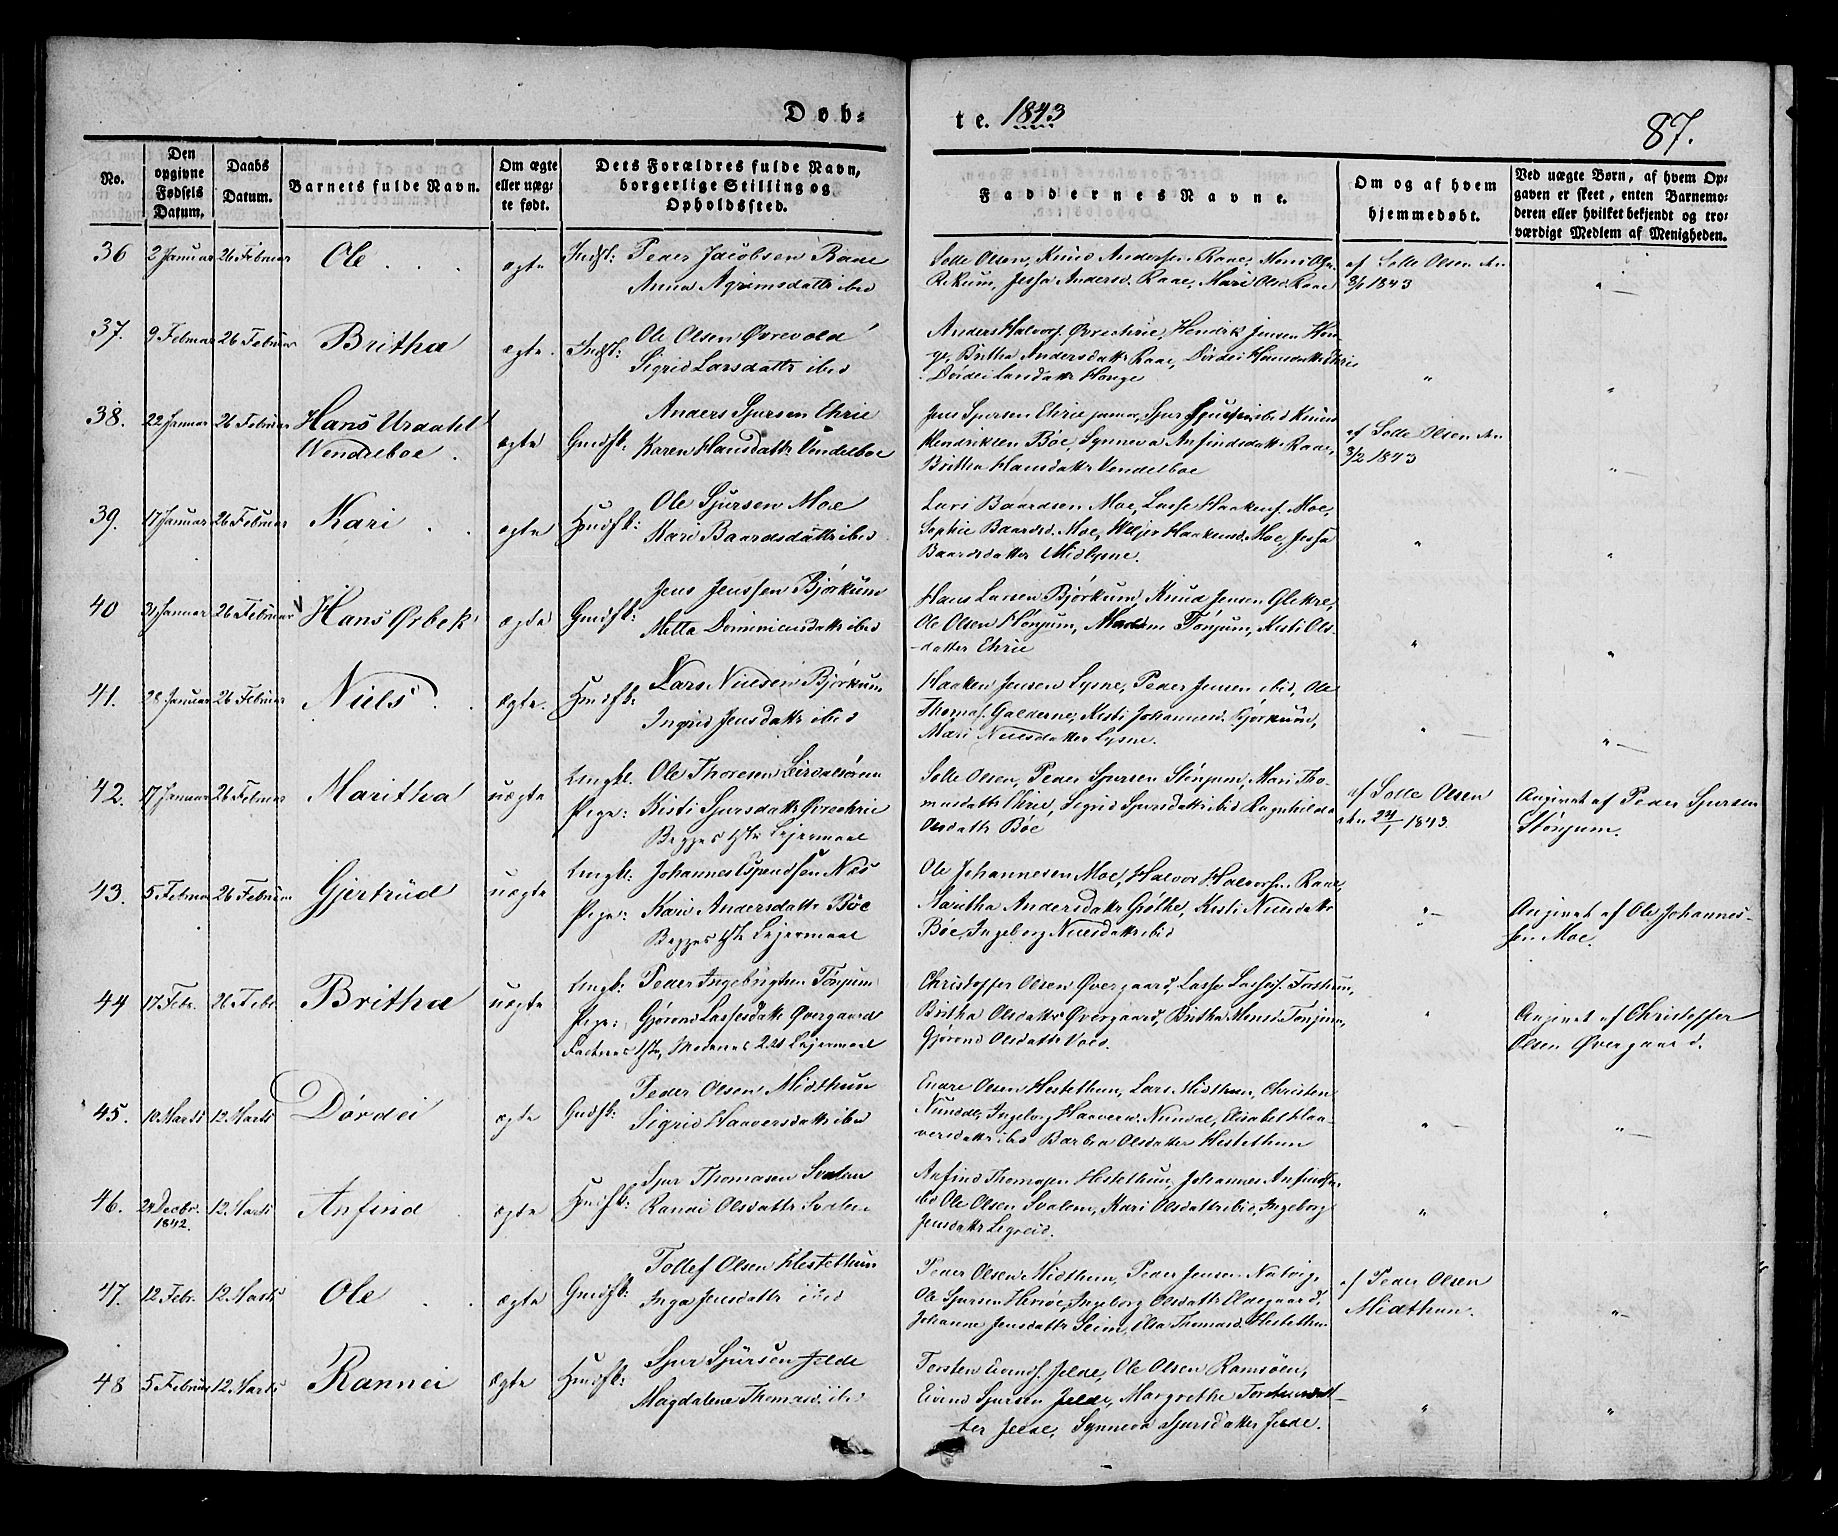 Døb-
te. 1843
87.
No.
Den opgivne Fødsels Datum.
Daabs Datum.
Barnets fulde Navn.
Om ægte eller uægte født.
Dets Forældres fulde Navn, borgerlige Stilling og Opholdssted.
Faddernes Navne.
Om og af hvem hjemmedøbt.
Ved uægte Børn, af hvem Opgaven er skeet, enten Barnemoderen eller hvilket bekjendt og troværdigt Medlem af Menigheden.
36 2 Januar 26 Februar Ole ægte Indst: Peder Jacobsen Raae
Anna Agrimsdattr ibid
Solle Olsen, Knud Andersen Raae, Mons Olsen
Rikum, Jessa Andersd. Raae, Mari Olsd. Raae
af Solle Olsen den
3/1 1843
37. 9 Februar 26 Februar Britha ægte. Indst: Ole Olsen Øvrevold
Sigrid Larsdattr ibid
Anders Halvors. Øvreehrie, Hendrik Jensen Hauge, Britha Andersdattr Raae, Dørdei Hansdattr Ehrie
Dørdei Larsdattr Hauge
38. 22 Januar 26 Februar Hans Urdahl
Wendelboe
ægte Gmdsk: Anders Sjursen Ehrie
Karen Hansdattr Vendelboe
Jens Sjursen Ehrie junior, Sjur Sjursen ibid Knud
Hendriksen Bøe, Synneva Anfindsdattr Raae,
Britha Hansdattr Vendelboe
af Solle Olsen den
3/2 1843
39. 17 Januar 26 Februar Kari ægte Hmdsk: Ole Sjursen Moe
Mari Baardsdattr ibid
Lars Baardsen Moe, Lasse Haakens. Moe,
Sophie Baardsd. Moe, Haakensd. Moe, Jessa
Baardsdatter Midlysne.
40 31 Januar 26 Februar Hans Ørbek ægte Gmdsk: Jens Jenssen Bjørkum
Metta Dominicusdattr ibid
Hans Larsen Bjørkum, Knud Jensen Glekre,
Ole Olsen Hønjum, Madame Tønjum, Kisti Ols-
datter Ehrie
41. 28 Januar 26 Februar Niels ægte. Hmdsk: Lars Nielsen Bjørkum
Ingrid Jensdattr ibid
Haaken Jensen Lysne, Peder Jensen ibid, Ole
Thomas. Galderne, Kisti Johannesd. Bjørkum,
Mari Nielsdatter Lysne.
42. 17 Januar 26 Februar Maritha uægte Ungkl. Ole Thoresen Leirdalsøren
Pige: Kisti Sjursdattr Øvreehrie
Begges 1ste Lejermaal
Solle Olsen, Peder Sjursen Stønjum, Mari Tho-
masdattr Ehrie, Sigrid Sjursdattr ibid Ragnhilda
Olsdattr Bøe
af Solle Olsen
den 24/1 1843.
Angivet af Peder Sjursen
Stønjum.
43. 5 Februar 26 Februar Gjertrüd uægte Ungk: Johannes Espendsen Næs
Pige: Kari Andersdattr Bøe
Begges 1ste Lejermaal
Ole Johannesen Moe, Halvor Halvorsen Raae,
Maritha Andersdattr Grøthe, Kisti Nielsdattr
Bøe, Ingeborg Nielsdattr ibid
Angivet af Ole Johannes-
sen Moe.
44 17 Febr. 26 Febr. Britha uægte Ungk: Peder Ingebrigtsen Tønjum
Pige: Gjørond Lassesdattr Øvergaard
Faderens 1ste, Moderens 2det Lejermaal
Christoffer Olsen Øvergaard, Lasse Lasses. Forthun,
Britha Olsdattr Øvergaard, Britha Monsd. Tønjum,
Gjørond Olsdattr Voss.
Angivet af Christoffer
Olsen Øvergaard.
45. 10 Marts 12 Marts Dørdei ægte Gmdsk: Peder Olsen Midthun
Sigrid Haaversdattr ibid
Endre Olsen Hestethun, Lars Midthun, Christen
Nundal, Ingeborg Haaversd. Nundal, Elisabet Haa-
versdattr ibid Barbra Olsdatter Hestethun
46. 24 Decbr. 1842. 12 Marts Anfind ægte Hmdsk: Sjur Thomasen Svalem
Randi Olsdattr Svalem
Anfind Thomasen Hestethun, Johannes Anfindsen
ibid Ole Olsen Svalem, Kari Olsdattr ibid, Ingeborg
Jensdattr Legreid.
47. 12 Febr. 12 Marts Ole ægte Gmdsk: Tollef Olsen Hestethun
Inga Jensdattr ibid
Peder Olsen Midthun, Peder Jensen Natvig,
Ole Sjursen Hereøe, Ingeborg Olsdattr Eldegaard,
Johanne Jensdattr Seim, Elsa Thomasd. Hestethun
af Peder Olsen
Midthun.
48 5 Februar 12 Marts Rannei ægte Hmdsk: Sjur Sjursen Jelde
Magdalene Thomasd. ibid
Torsten Eivinds. Jelde, Ole Olsen Ramsøen,
Eivind Sjursen Jelde, Margrethe Torstensdat-
ter Jelde, Synneva Sjursdatter Jelde.